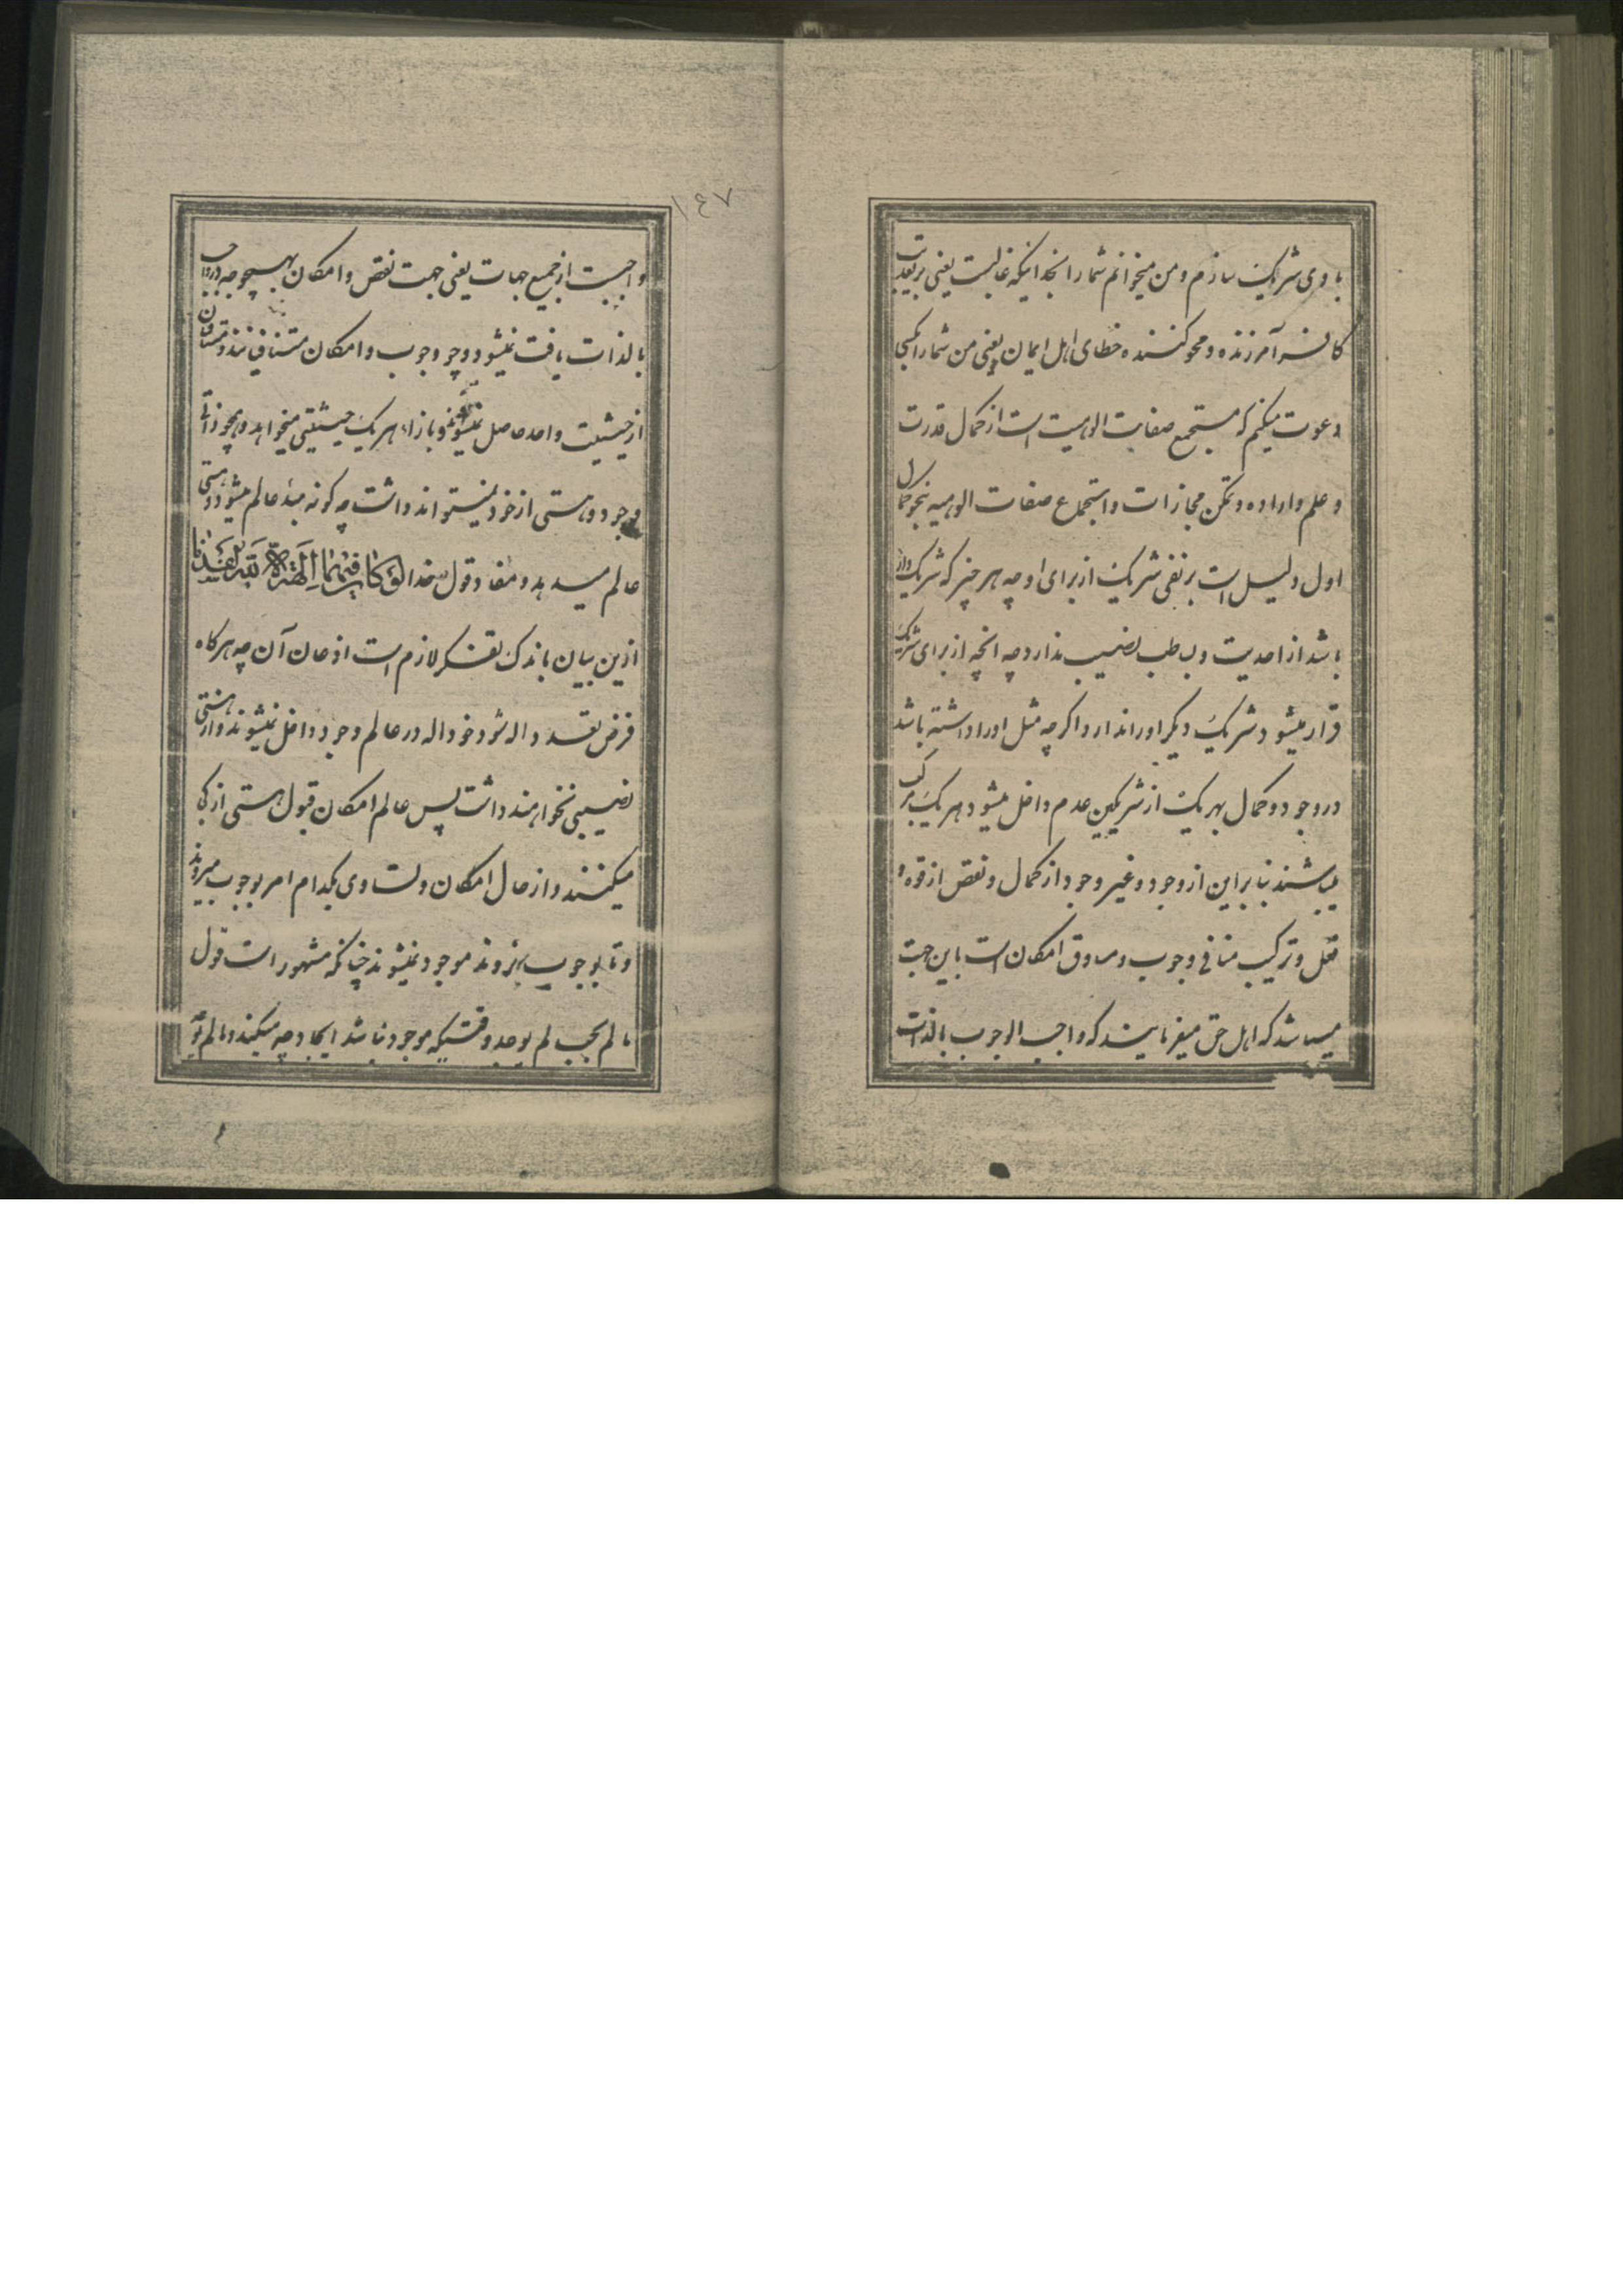 باوی شریک سازم و من میخوانم شما را بخدائیکه غالبست یعنی بر تعذیب
کافر آمرزنده و محو کننده خطای اهل ایمان یعنی من شما را بکسی
دعوت میکنم که مستجمع صفات الوهیت است از کمال قدرت
و علم و اراده و تمکن مجازات و استجماع صفات الوهیه بنحو کمال
اول دلیل است بر نفی شریک از برای او چه هر چیز که شریک دار
باشد از احدیت و بساطت نصیب ندارد چه انچه از برای شریک
قرار میشود شریک دیگر او را ندارد اگر چه مثل او را داشته باشد
در وجود و کمال بهر یک از شریکین عدم داخل میشود هر یک مرکب
میباشند بنابراین از وجود و غیر وجود از کمال و نقص از قوه و
فعل و ترکیب منافی وجوب و مساوق امکان است باین جهت
میباشد که اهل حق میفرمایند که واجب الوجوب بالذات
١٤٧
واجبست از جمیع جهات یعنی جهت نقص و امکان بهیچوجه در واجب
بالذات یافت نمیشود و چو وجوب و امکان متنافیند و متنافیان
از حیثیت واحد حاصل نمیشوند و بازاء هر یک حیثیتی میخواهد و همچو ذاتی
وجود و هستی از خود نمیتواند داشت چه گونه مبدء عالم میشود و هستی
عالم میدهد و مفاد قول خدا لَوْ كَانَ فِيهِمَا آلِهَةٌ إِلَّا اللَّهُ لَفَسَدَتَا
ازین بیان باندک تفکر لازم است اذعان آن چه هرگاه
فرض تعدد اله شود خود اله در عالم وجود داخل نمیشوند و از هستی
نصیبی نخواهند داشت پس عالم امکان قبول هستی از کی
میکنند و از حال امکان و تساوی بکدام امر بوجوب میروند
و تا بوجوب نروند موجود نمیشوند چنانکه مشهور است قول
ما لم یجب لم یوجد و وقتیکه موجود نباشد ایجاد چه میکند و ما لم یوجد